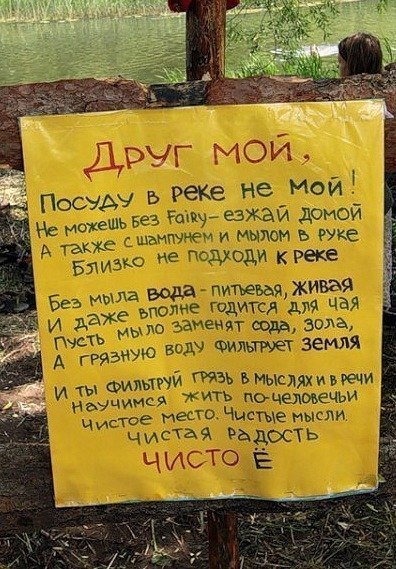 Друг мой,
Посуду в реке не мой!
Не можешь без Fairy – езжай домой
А также с шампунем и мылом в руке
Близко не подходи к реке
Без мыла вода – питьевая, живая
И даже вполне годится для чая
Пусть мыло заменят сода, зола,
А грязную воду фильтрует земля
И ты фильтруй грязь в мыслях и в речи
Научимся жить по-человечьи
Чистое место. Чистые мысли.
Чистая радость
Чисто Ё